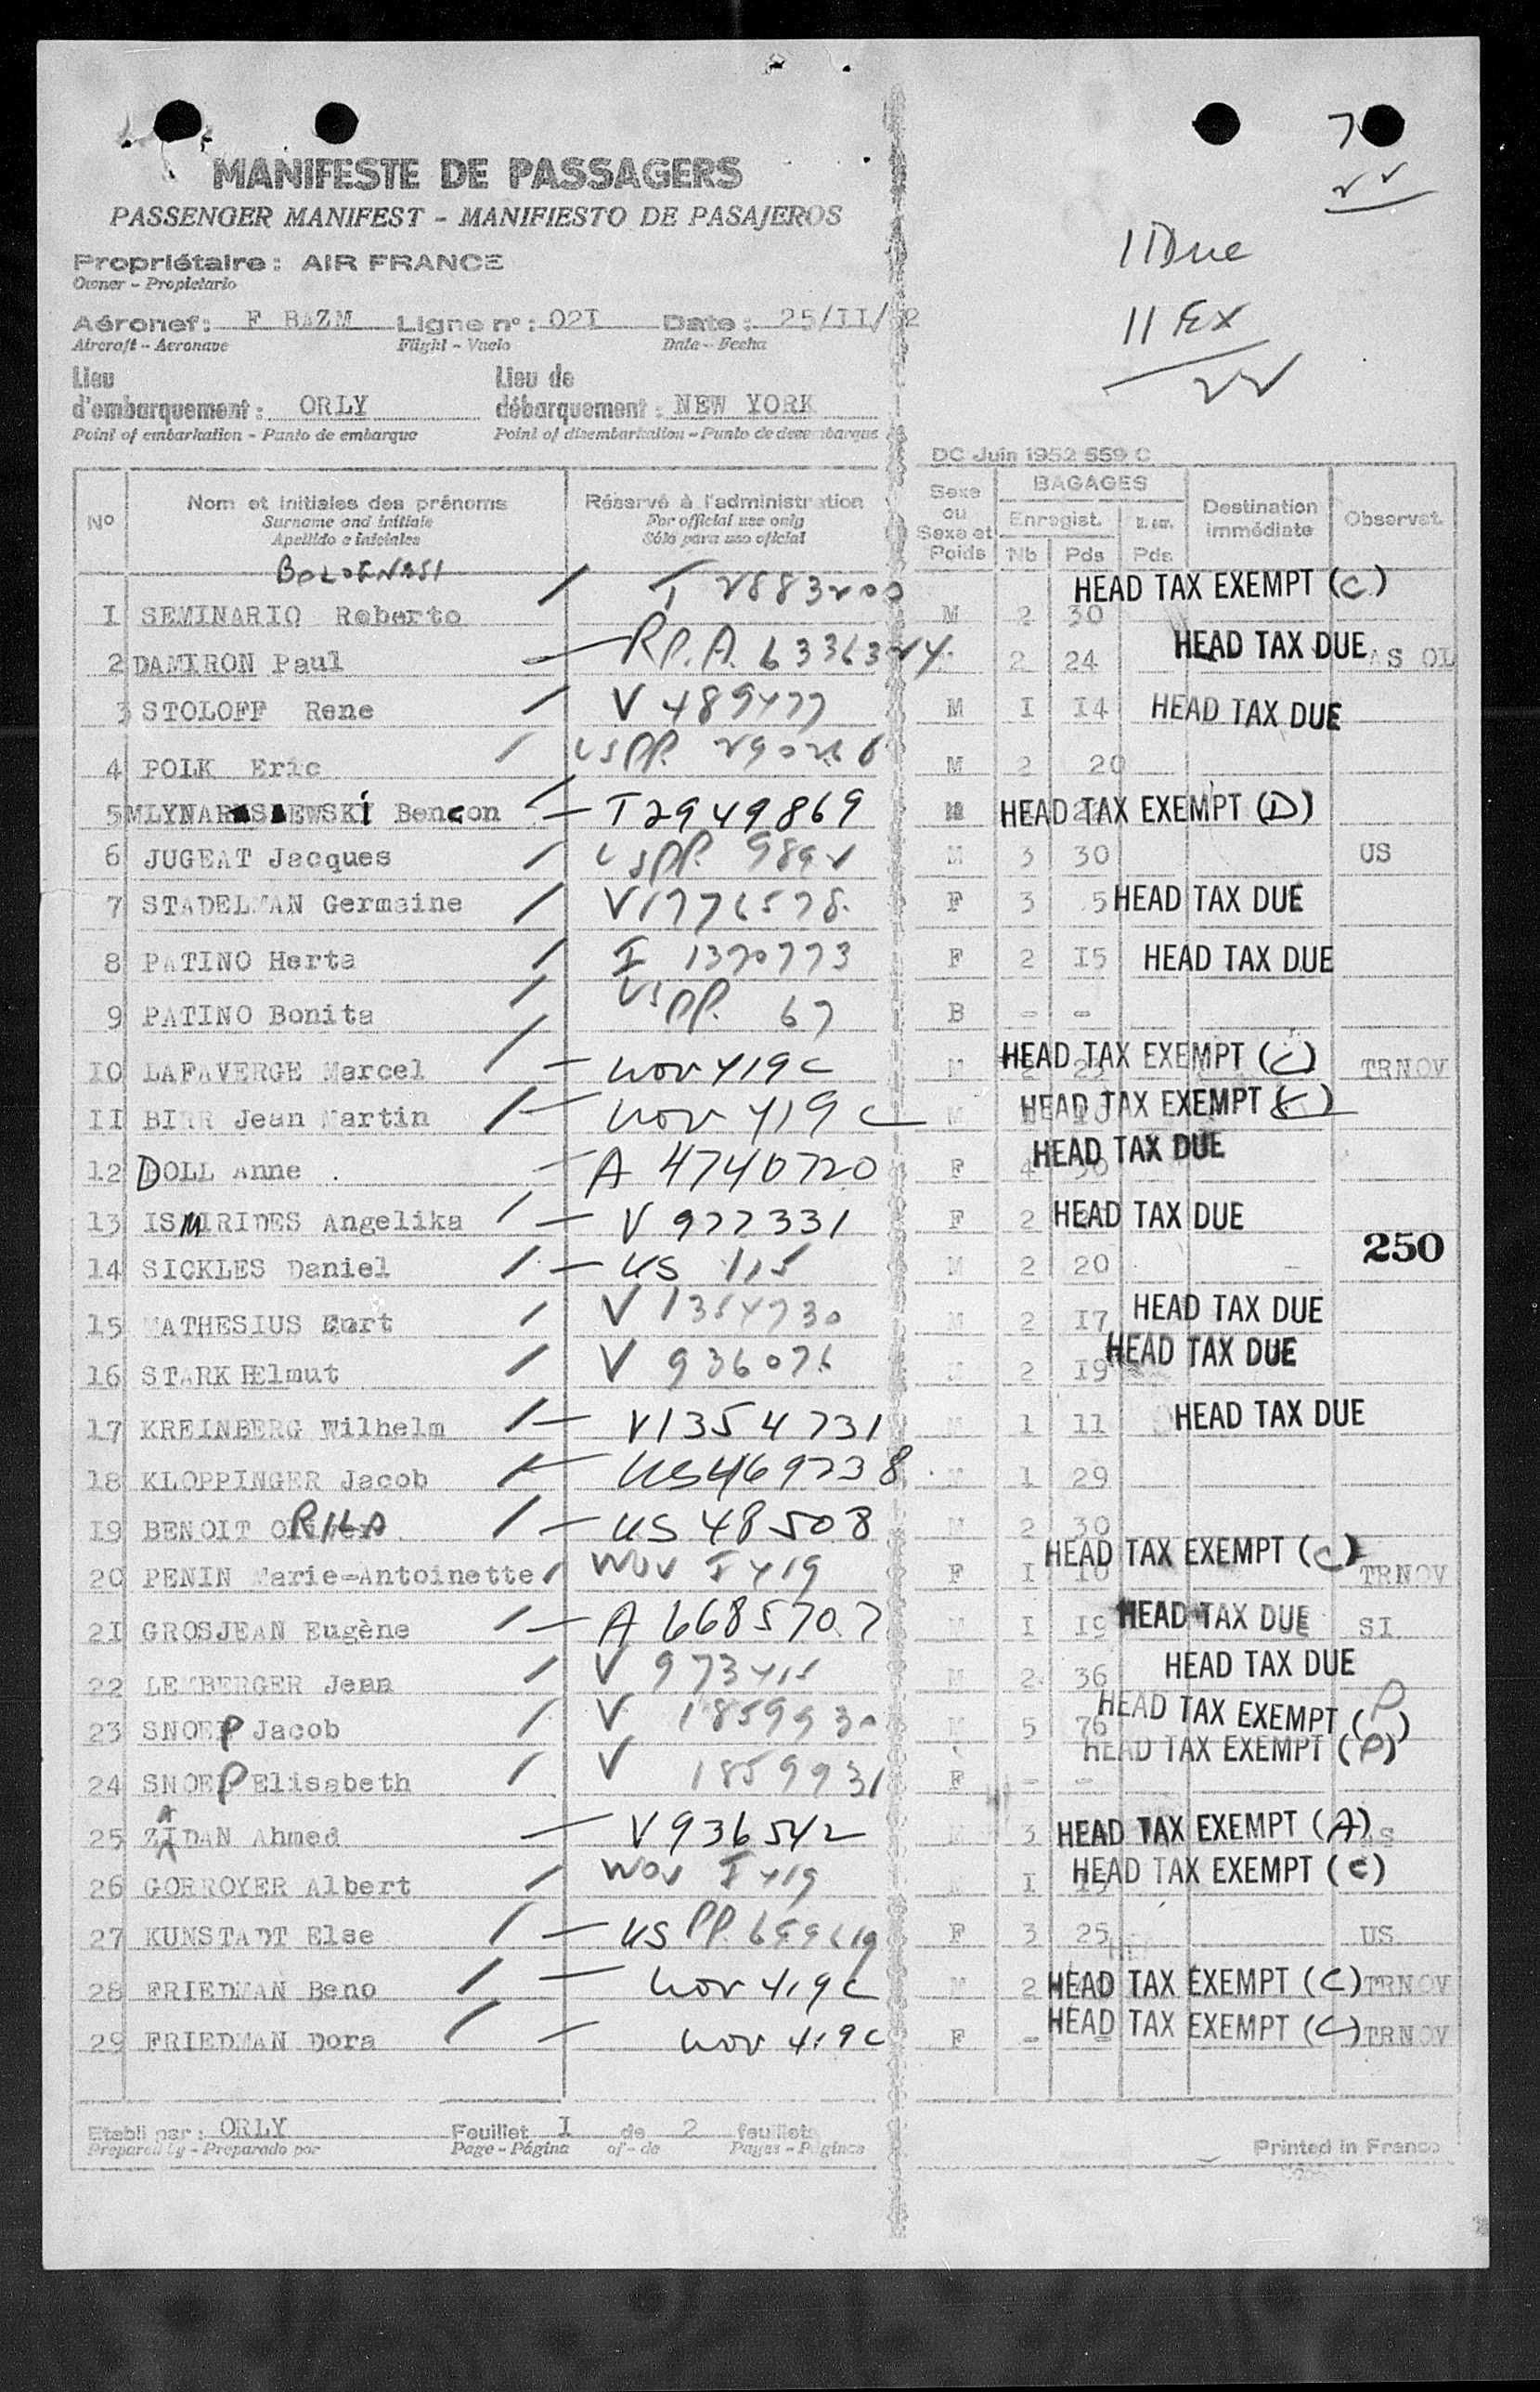 7
22
MANIFESTE DE PASSAGERS
PASSENGER MANIFEST - MANIFIESTO DE PASAJEROS
11 Due
11 Ex
22
Propriétaire : AIR FRANCE
Owner - Propietario
Aéronef : F BAZM Ligne n° : 02I Date : 25/II/ 2
Aircraft - Aeronave Flight - Vuelo Date - Fecha
Lieu d'embarquement : ORLY Lieu de débarquement : NEW YORK
Point of embarkation - Punto de embarque Point of disembarkation - Punto de desembarque
DC Juin 1952 559 C
N° Nom et initiales des prénoms Réservé à l'administration Sexe ou Sexe et Poids BAGAGES Destination immédiate Observat.
Surname and initials For official use only Enregist.
Apellido e iniciales Sólo para uso oficial Nb Pds Pds
BOLOGNESI
I SEMINARIO Roberto T 2883200 M 2 30 HEAD TAX EXEMPT (C)
2 DAMIRON Paul R.P.A. 6336324 2 24 HEAD TAX DUE AS OL
3 STOLOFF Rene V 489477 M I I4 HEAD TAX DUE
4 POLK Eric USPP. M 2 20
5 MLYNAR S EWSKI Bencon T2949869 HEAD TAX EXEMPT (D)
6 JUGEAT Jacques USPP. 9892 M 3 30 US
7 STADELMAN Germaine V1776578 F 3 5 HEAD TAX DUE
8 PATINO Herta I 1370773 F 2 I5 HEAD TAX DUE
9 PATINO Bonita USPP. 67 B - -
IO LAFAVERGE Marcel wov 419c M 2 HEAD TAX EXEMPT (C) TRNOV
II BIRR Jean Martin wov 419c M HEAD TAX EXEMPT (C)
I2 DOLL Anne A 4740720 F 4 HEAD TAX DUE
I3 ISMIRIDES Angelika V 977331 F 2 HEAD TAX DUE
250
I4 SICKLES Daniel US 115 M 2 20
I5 MATHESIUS Kurt V 1354730 M 2 I7 HEAD TAX DUE
I6 STARK HElmut V 936076 2 I9 HEAD TAX DUE
I7 KREINBERG Wilhelm V1354731 M 1 11 HEAD TAX DUE
I8 KLOPPINGER Jacob US469738 M 1 29
I9 BENOIT ORILA US 48508 M 2 30
20 PENIN Marie-Antoinette wov I 419 F I HEAD TAX EXEMPT (C) TRNOV
2I GROSJEAN Eugène A 6685707 M I I9 HEAD TAX DUE SI
22 LEMBERGER Jean V 973415 M 2 36 HEAD TAX DUE
23 SNOEP Jacob V 1859930 M 5 76 HEAD TAX EXEMPT (P)
24 SNOEP Elisabeth V 1859931 F - - HEAD TAX EXEMPT (P)
25 ZAIDAN Ahmed V936542 M 3 HEAD TAX EXEMPT (A)
26 GORROYER Albert wov I 419 I HEAD TAX EXEMPT (C)
27 KUNSTADT Else US PP. 659619 F 3 25 US
28 FRIEDMAN Beno wov 419c M 2 HEAD TAX EXEMPT (C) TRNOV
29 FRIEDMAN Dora wov 419c F - - HEAD TAX EXEMPT (C) TRNOV
Etabli par : ORLY Feuillet I de 2 feuillets
Prepared by - Preparado por Page - Página of - de Pages - Páginas Printed in France